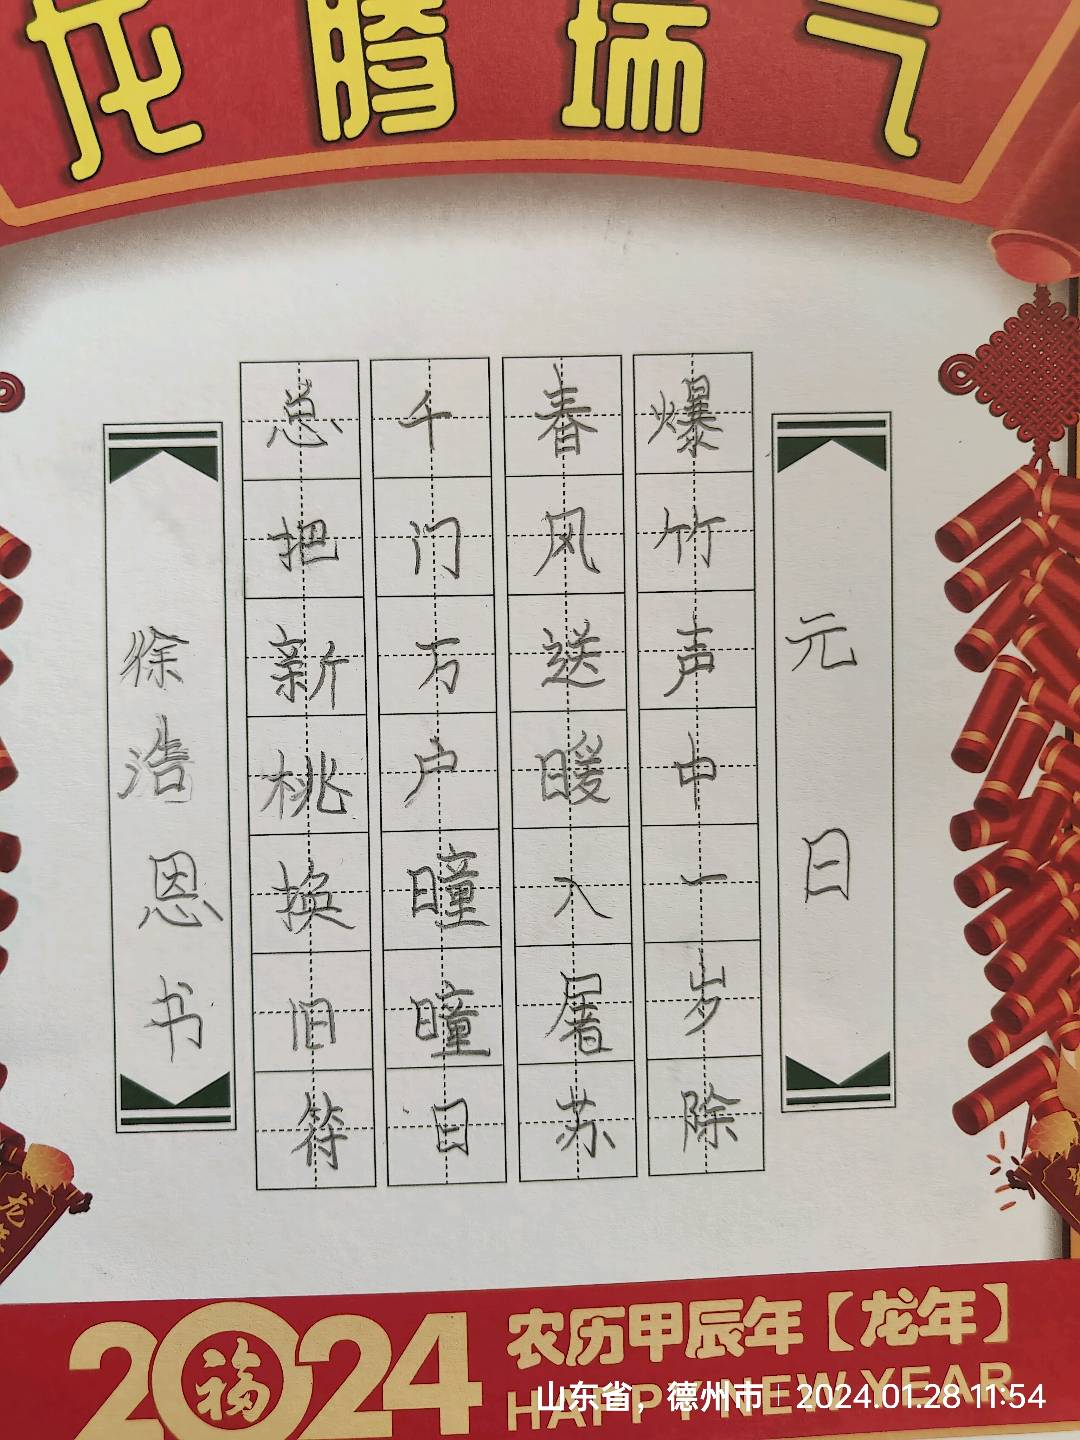 龙腾瑞气
元日
爆竹声中一岁除
春风送暖入屠苏
千门万户曈曈日
总把新桃换旧符
徐浩恩书
2024
福
农历甲辰年【龙年】
HAPPY NEW YEAR
山东省，德州市 2024.01.28 11:54